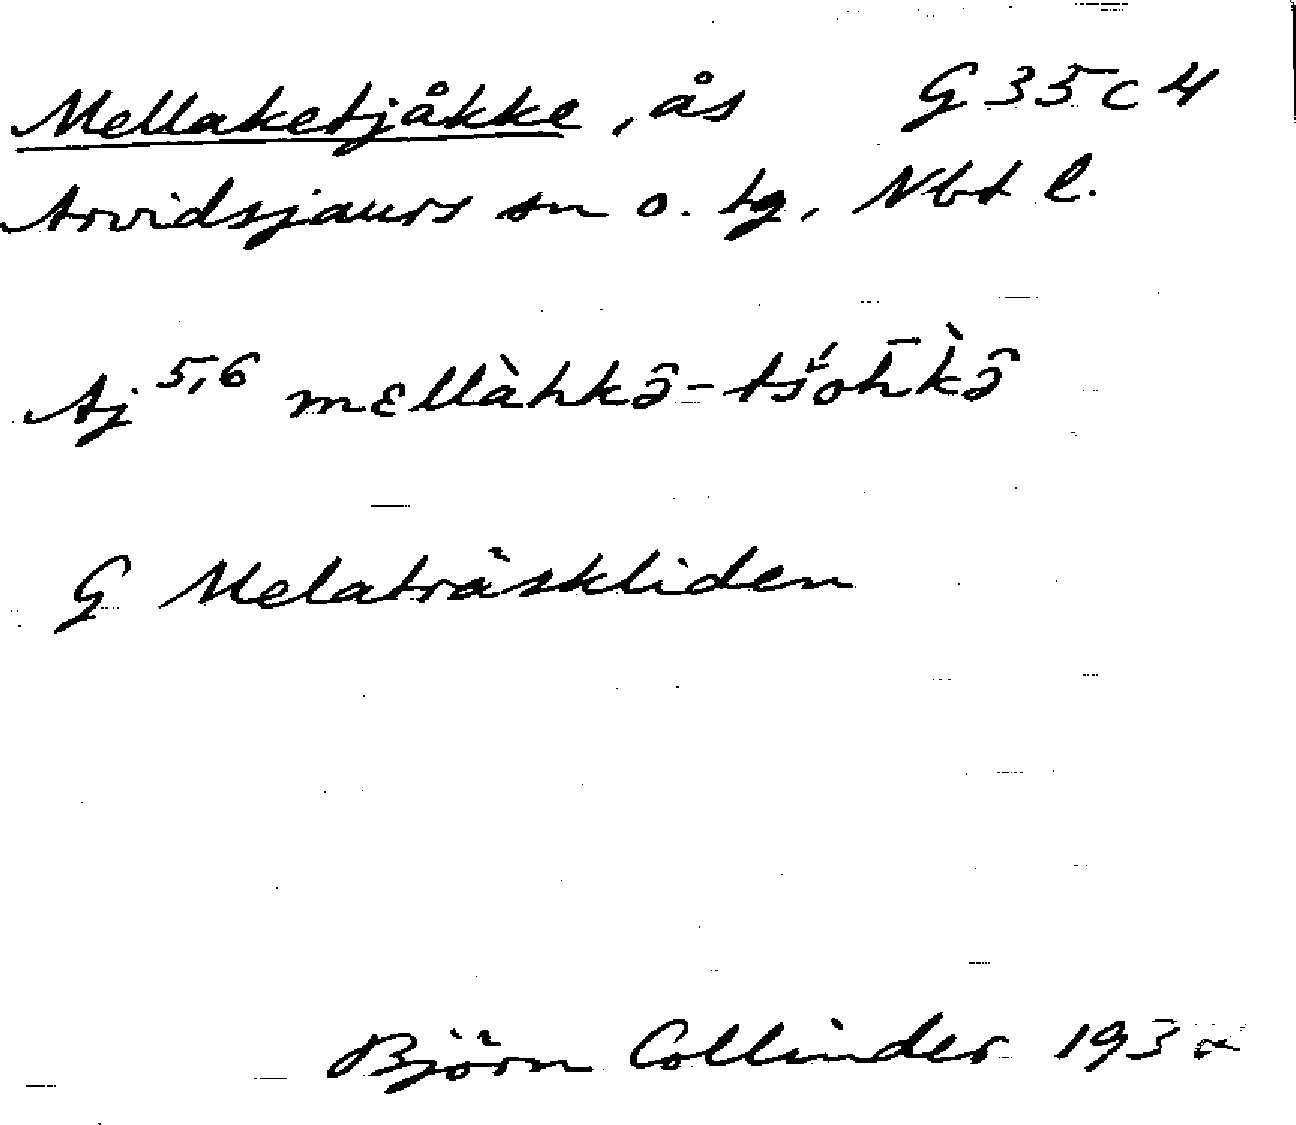 Mellaketjåkke, ås G 35 c 4
Arvidsjaurs sn o. tg, Nbt l.
Aj 5,6 mεllàhkə̂-tśoh̄k̀ə̂
G Melaträskliden
Björn Collinder